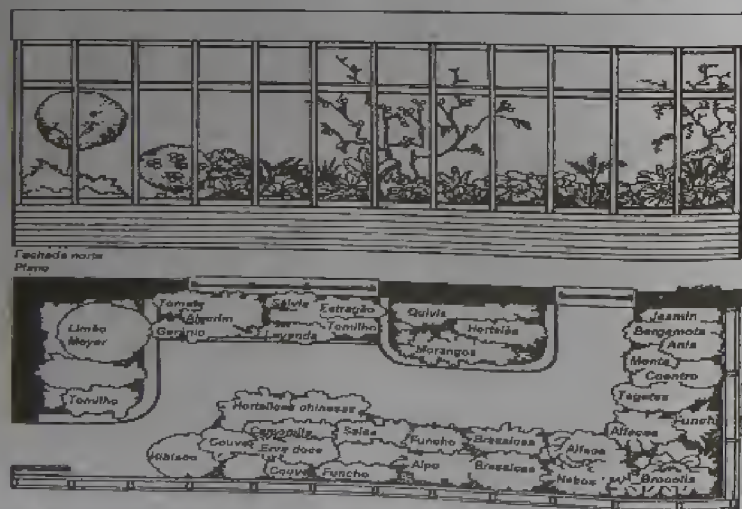 Fachada norte
Plano
Limão
Meyer
Tomilho
Tomate
Alecrim
Gerânio
Sálvia
Estragão
Lavanda
Tomilho
Quivis
Hortelãs
Morangos
Jasmin
Bergamota
Anis
Menta
Coentro
Tagetes
Alfaces
Funcho
Hortaliças chinesas
Camomila
Couve
Erva doce
Couve
Hibisco
Salsa
Funcho
Funcho
Aipo
Brassicas
Brassicas
Alface
Nabos
Brocolis